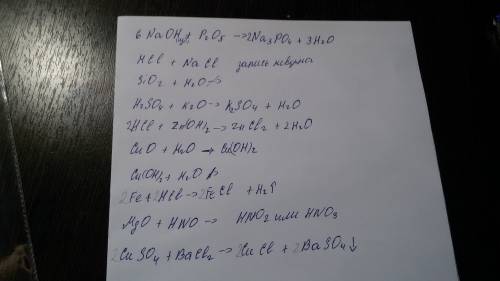 6 NaOH(изб) + P₂O₅ → 2Na₃PO₄ + 3H₂O
HCl + NaCl запись неверна
SiO₂ + H₂O ↛
H₂SO₄ + K₂O → K₂SO₄ + H₂O
2HCl + Zn(OH)₂ → ZnCl₂ + 2H₂O
CuO + H₂O → Cu(OH)₂
Cu(OH)₂ + H₂O ↛
2Fe + 2HCl → 2FeCl + H₂↑
MgO + HNO → HNO₂ или HNO₃
2CuSO₄ + BaCl₂ → 2CuCl + 2BaSO₄↓